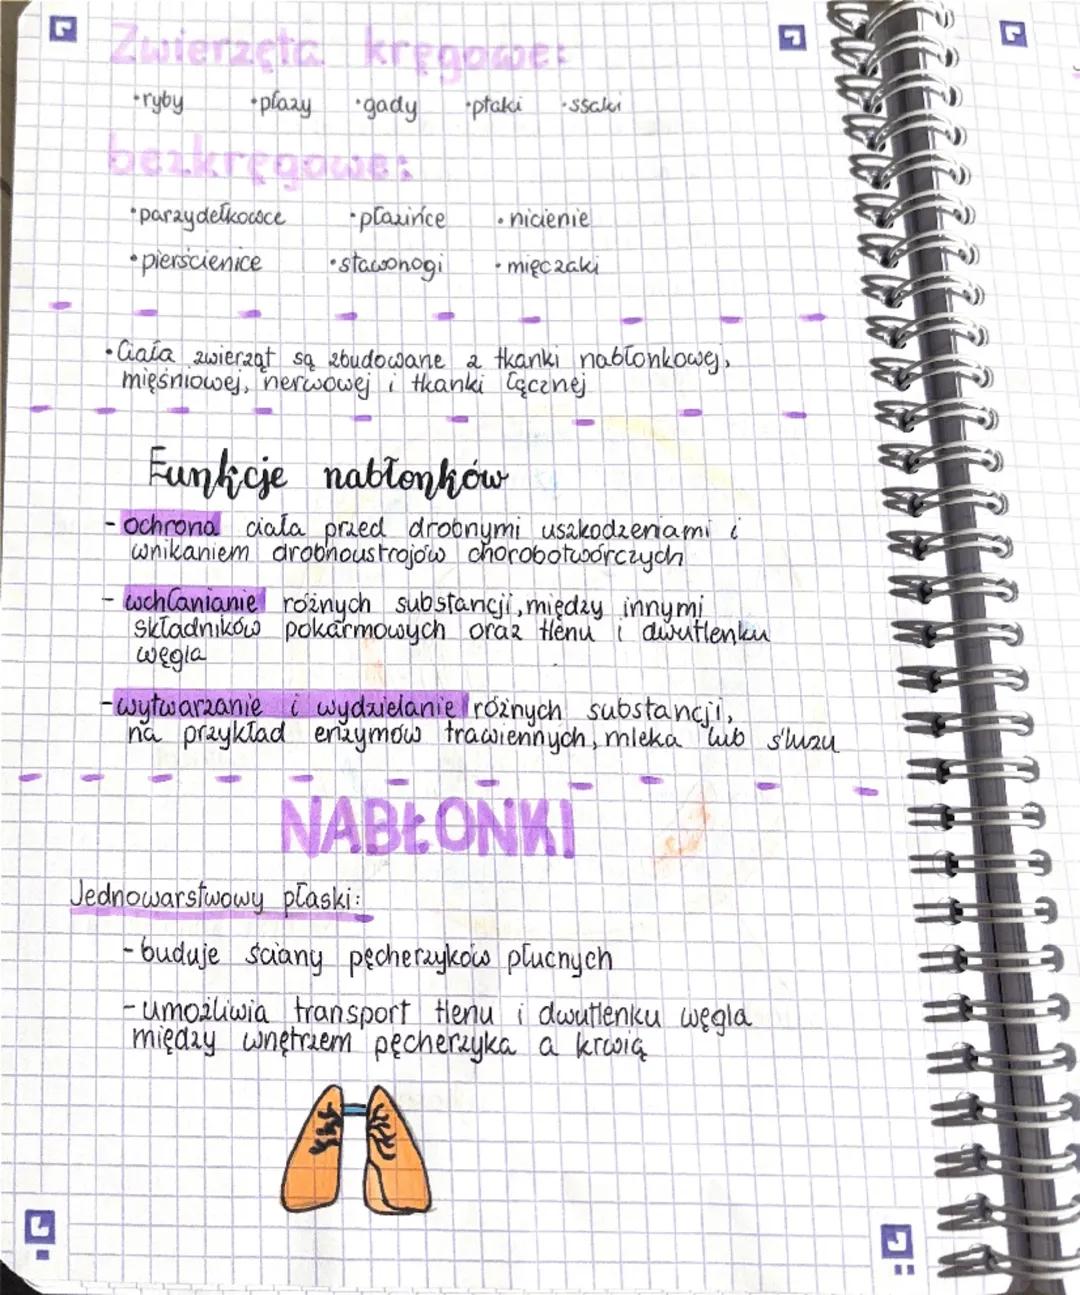 Zwierzęta kręgowe:
•ryby •płazy •gady •ptaki •ssaki
bezkręgowe:
•parzydełkowce •płazińce •nicienie
•pierścienice •stawonogi •mięczaki
•Ciała zwierząt są zbudowane z tkanki nabłonkowej,
mięśniowej, nerwowej i tkanki łącznej
Funkcje nabłonków
- ochrona ciała przed drobnymi uszkodzeniami i
wnikaniem drobnoustrojów chorobotwórczych
- wchłanianie różnych substancji, między innymi
składników pokarmowych oraz tlenu i dwutlenku
węgla
- wytwarzanie i wydzielanie różnych substancji,
na przykład enzymów trawiennych, mleka lub śluzu
NABŁONKI
Jednowarstwowy płaski:
- buduje ściany pęcherzyków płucnych
- umożliwia transport tlenu i dwutlenku węgla
między wnętrzem pęcherzyka a krwią